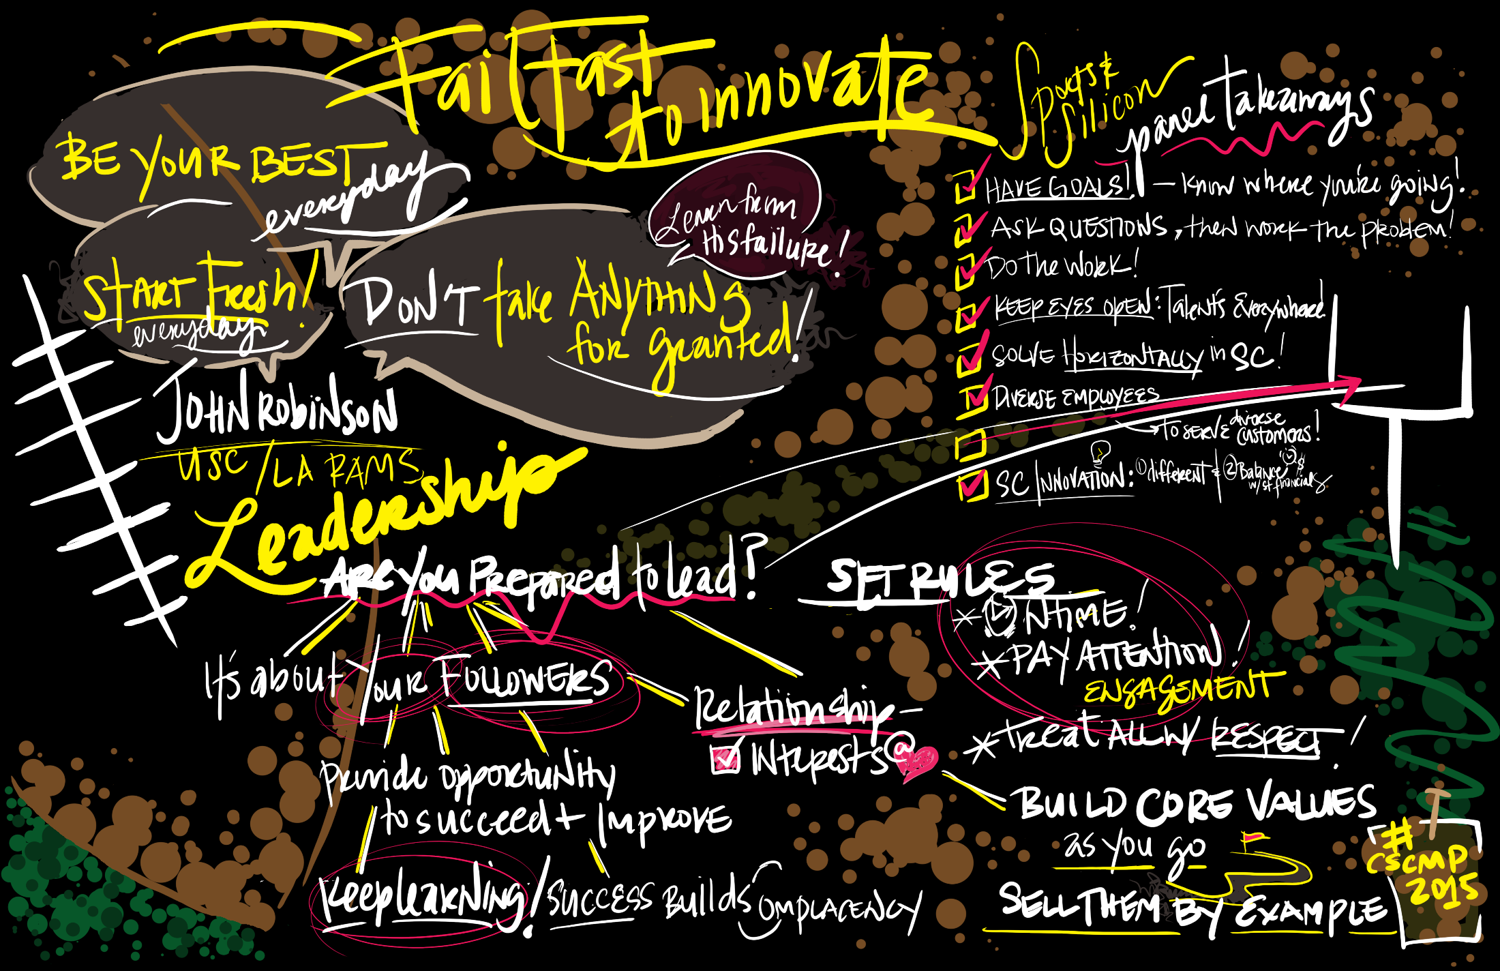 Fail fast
to innovate
BE YOUR BEST
everyday
START Fresh!
everyday
DON'T take ANYTHING
for granted!
Learn from
His failure!
JOHN ROBINSON
USC/LA RAMS
Leadership
ARE YOU PREPARED to lead?
It's about Your FOLLOWERS
Provide opportunity
to succeed + IMPROVE
Keep learning!
/SUCCESS BUILDS COMPLACENCY
Relationship –
INterests @
Sports &
Silicon
panel takeaways
HAVE GOALS! – Know where you're going!
ASK QUESTIONS, then work the problem!
Do the WORK!
KEEP EYES OPEN: Talent's Everywhere!
SOLVE HORIZONTALLY in SC!
DIVERSE EMPLOYEES
to SERVE diverse
customers!
SC INNOVATION: ① different & ② Balance
SET RULES
* ON TIME!
* PAY ATTENTION!
ENGAGEMENT
* TREAT ALL W/ RESPECT!
BUILD CORE VALUES
as you go
SELL THEM BY EXAMPLE
#
CSCMP
2015